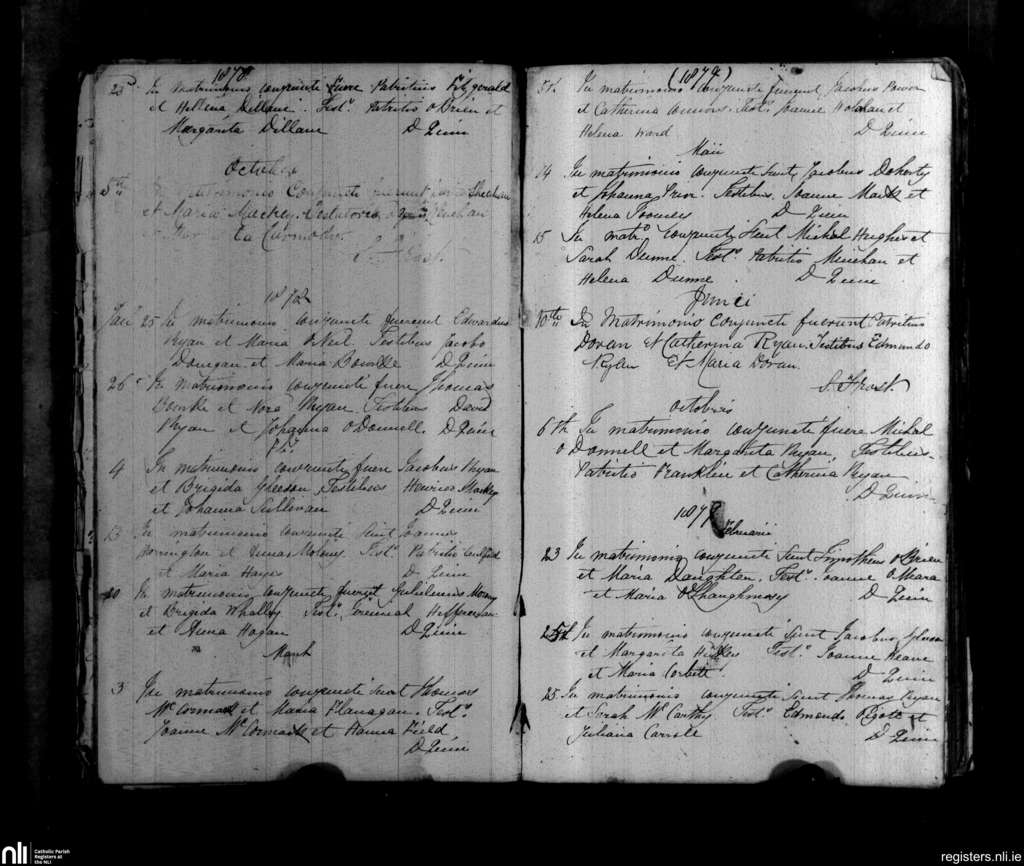 1878
23 In matrimonio conjuncti fuere Patritius Fitzgerald
et Hellena Dillane. Test. Patritio O Brien et
Margarita Dillane D Quin
October
5th In matrimonio Conjuncti fuerunt Sheehan
et Maria Mackey. Testibus
S Frost.
1879
Jan 25 In matrimonio conjuncti fuerunt Edwardus
Ryan et Maria O'Neil Testibus Jacobo
Donegan et Maria Bourke D Quin
26 In matrimonio conjuncti fuere Thomas
Bourke et Nora Ryan Testibus David
Ryan et Johanna O'Donnell D Quin
Feb
4 In matrimonio conjuncti fuere Jacobus Ryan
et Brigida Gleeson Testibus Henrico Mackey
et Johanna Sullivan D Quin
13 In matrimonio conjuncti sunt Joannes
et Anna Molony Test. Patritio
et Maria Hayes D Quin
20 In matrimonio conjuncti fuerunt Gulielmus
et Brigida Whalley Test. Heffernan
et Anna Hogan D Quin
March
3 In matrimonio conjuncti sunt Thomas
McCormack et Maria Flanagan. Test.
Joanne McCormack et Hanna Field
D Quin
(1879)
In matrimonio conjuncti fuerunt Jacobus Power
et Catherina Connors. Test. Joanne et
Helena Ward D Quin
Maii
14 In matrimonio conjuncti sunt Jacobus Doherty
et Johanna Prior. Testibus. Joanne et
Helena Toomey D Quin
15 In matro. conjuncti sunt Michal Hughes et
Sarah Dunne. Test. Patritio Minehan et
Helena Dunne D Quin
Junii
10th In Matrimonio Conjuncti fuerunt Patritius
Doran et Catherina Ryan. Testibus Edmundo
Et Maria Doran.
S. Frost
Octobris
6th In matrimonio conjuncti fuere Michal
O Donnell et Margarita Ryan, Testibus-
Patritio Franklin et Catherina Ryan
D Quin
1879
Februarii
23 In matrimonio conjuncti sunt Timotheus O'Brien
et Maria Naughton. Test. Joanne O Meara
et Maria O'Shaughnessy D Quin
In matrimonio conjuncti sunt Jacobus
et Margarita Test. Joanne Keane
et Maria Corbett. D Quin
25 In matrimonio conjuncti sunt Thomas Ryan
et Sarah McCarthy. Test. Edmondo et
Juliana Carrole D Quin
nli
Catholic Parish
Registers at
the NLI
registers.nli.ie